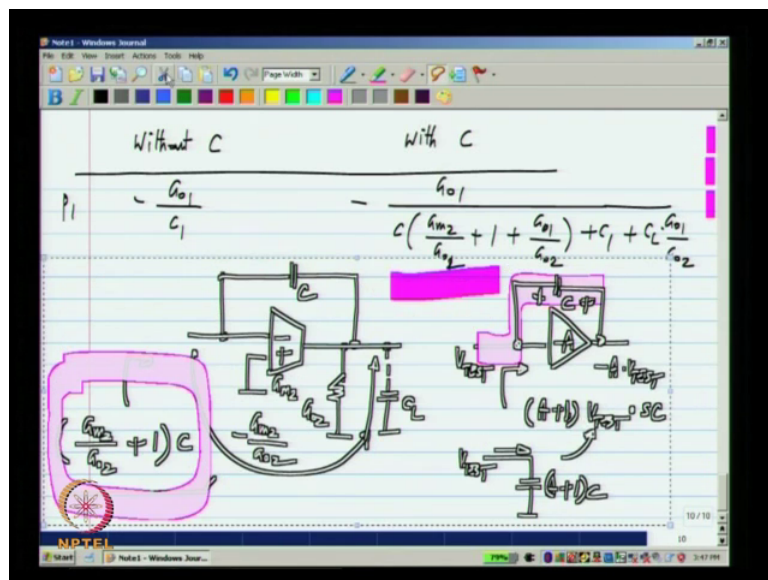 Note1 - Windows Journal
File Edit View Insert Actions Tools Help
Page Width
B I
Without C With C
P1 - Go1/C1 - Go1/(C(Gm2/Go2 + 1 + Go1/Go2) + C1 + CL·Go1/Go2)
C + C -
- + -A
Gm2 Go2 CL VTEST -A·VTEST
-Gm2/Go2 (A+1) VTEST·SC
(Gm2/Go2 + 1)C VTEST (A+1)C
10 / 10
10
NPTEL
Start Note1 - Windows Jour... 79% 3:47 PM